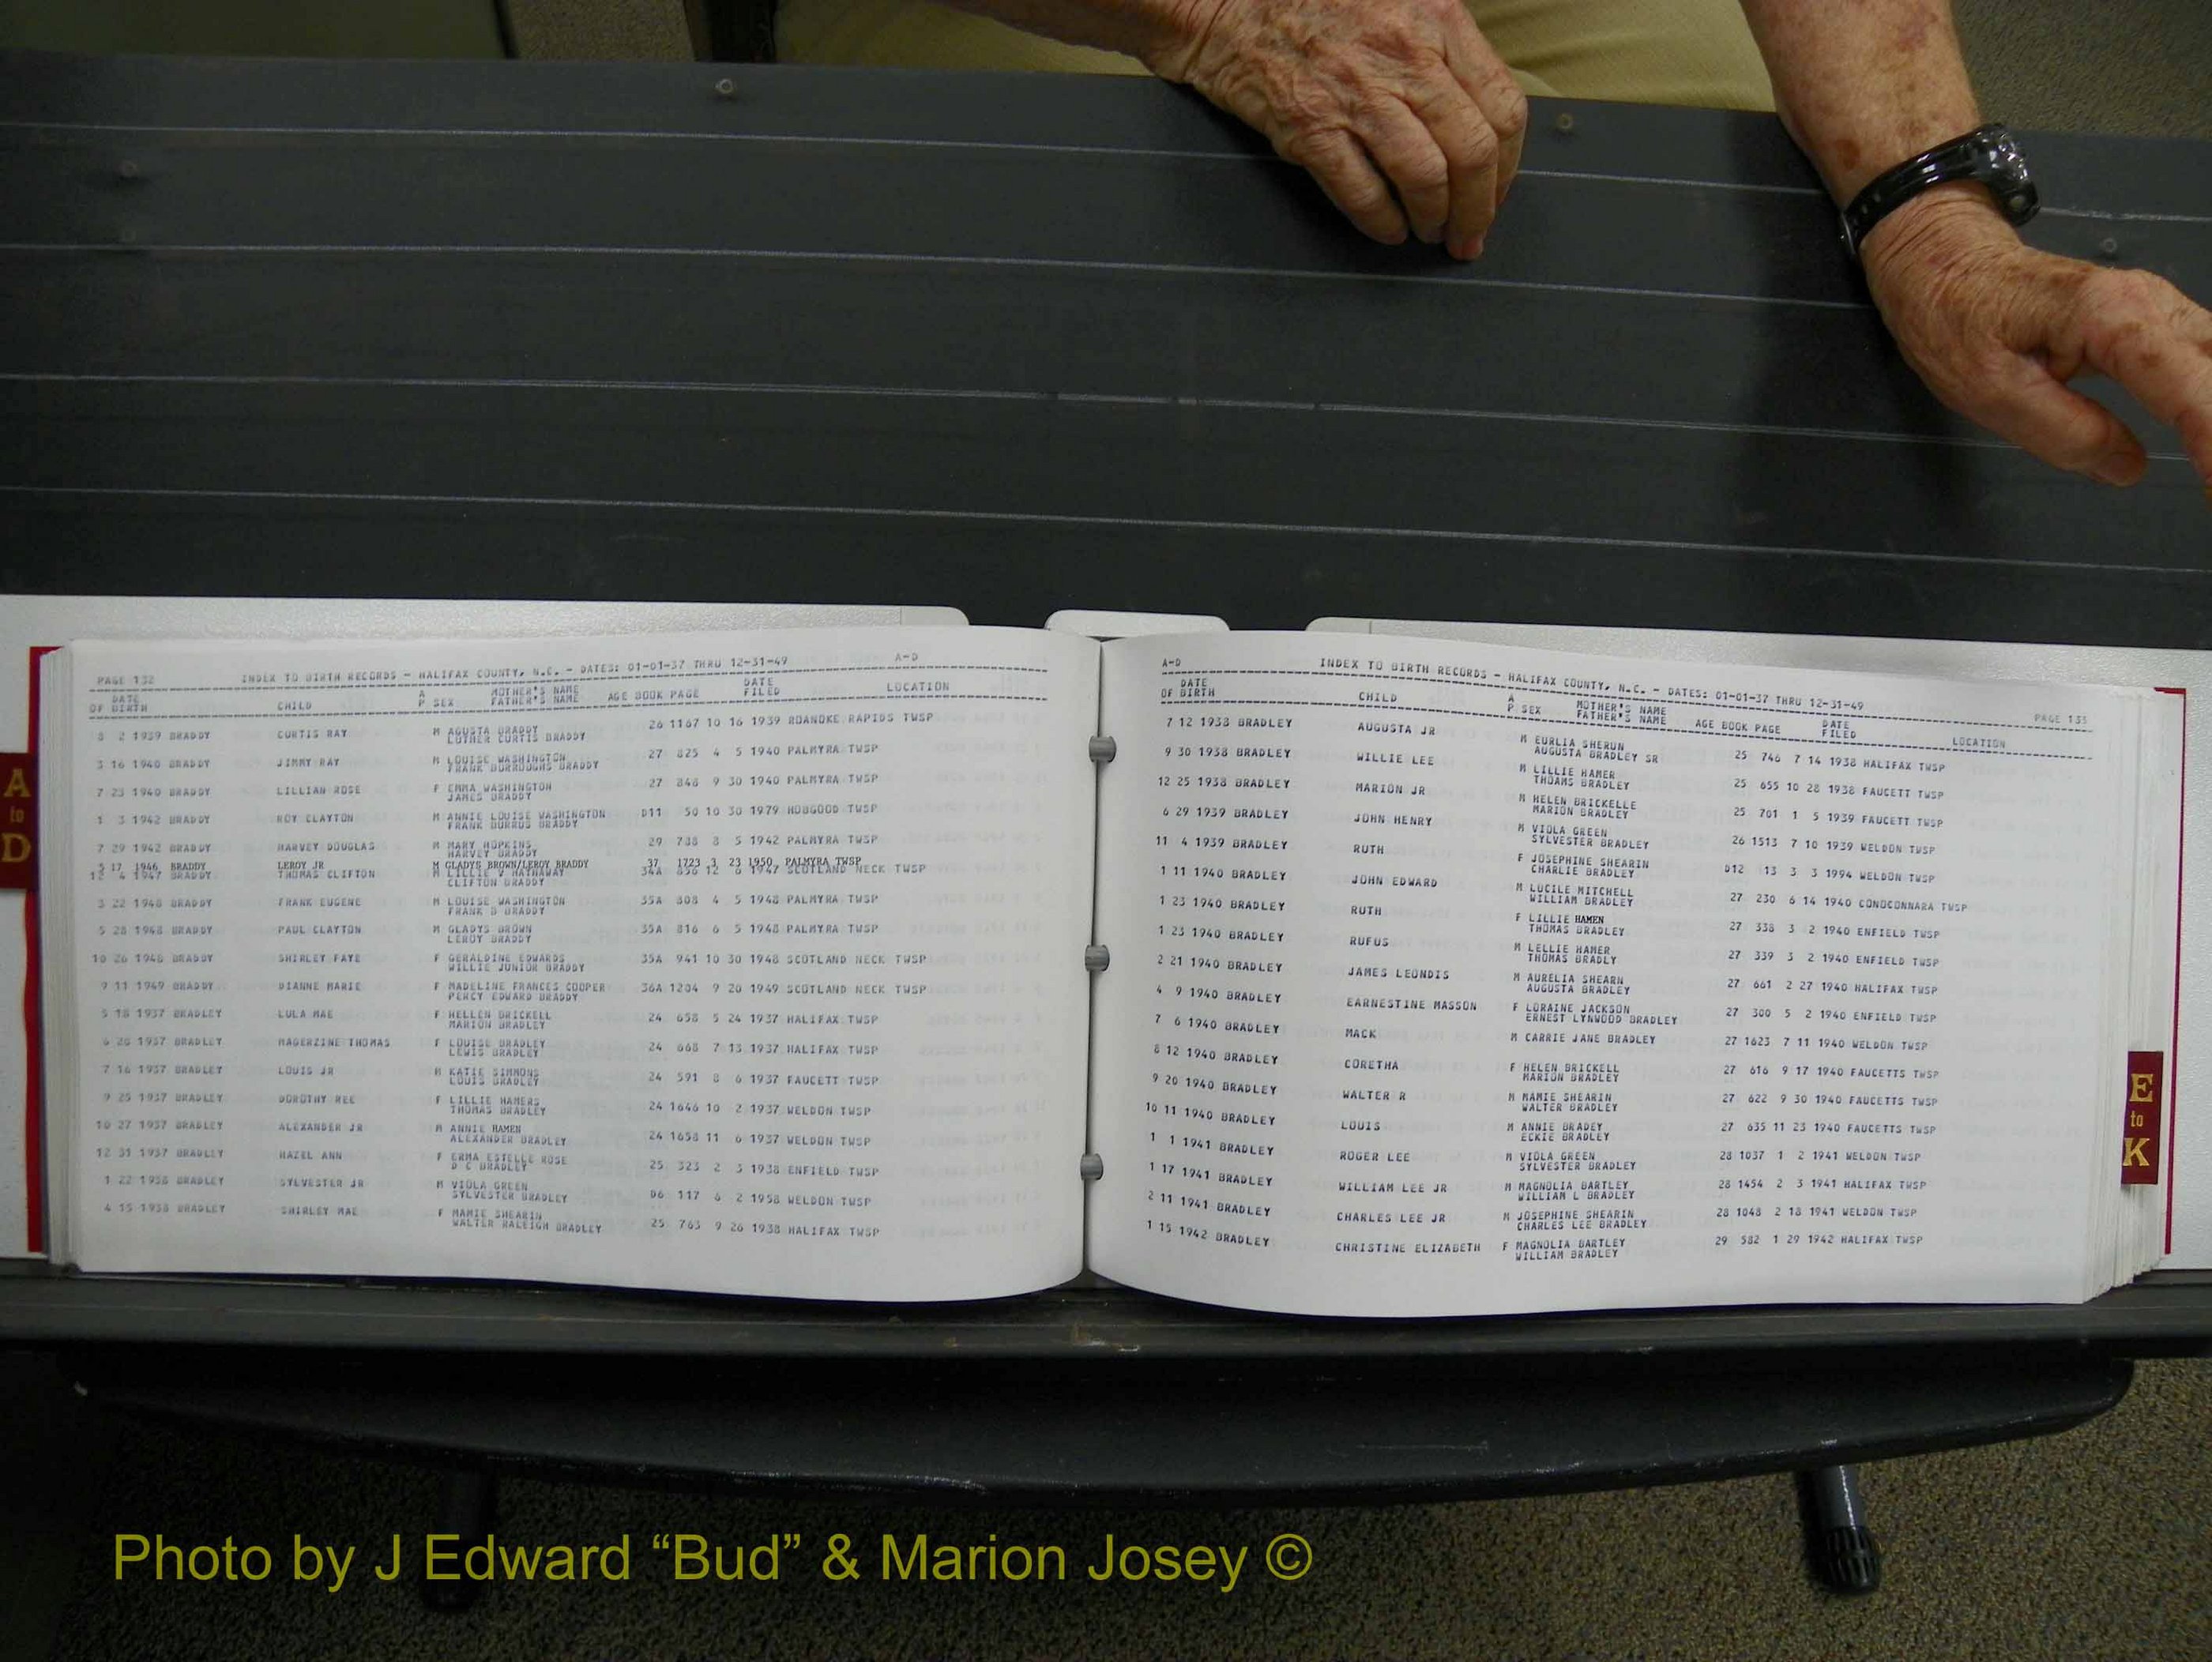 A
to
D
PAGE 132 INDEX TO BIRTH RECORDS - HALIFAX COUNTY, N.C. - DATES: 01-01-37 THRU 12-31-49 A-D
DATE OF BIRTH CHILD A P SEX MOTHER'S NAME FATHER'S NAME AGE BOOK PAGE DATE FILED LOCATION
8 2 1939 BRADDY CURTIS RAY M AGUSTA BRADDY 26 1167 10 16 1939 ROANOKE RAPIDS TWSP
LUTHER CURTIS BRADDY
3 16 1940 BRADDY JIMMY RAY M LOUISE WASHINGTON 27 825 4 5 1940 PALMYRA TWSP
FRANK BURROUGHS BRADDY
7 23 1940 BRADDY LILLIAN ROSE F EMMA WASHINGTON 27 848 9 30 1940 PALMYRA TWSP
JAMES BRADDY
1 3 1942 BRADDY ROY CLAYTON M ANNIE LOUISE WASHINGTON D11 50 10 30 1979 HOBGOOD TWSP
FRANK BURROS BRADDY
7 29 1942 BRADDY HARVEY DOUGLAS M MARY HOPKINS 29 788 8 5 1942 PALMYRA TWSP
HARVEY BRADDY
5 17 1946 BRADDY LEROY JR M GLADYS BROWN/LEROY BRADDY 37 1723 3 23 1950 PALMYRA TWSP
12 4 1947 BRADDY THOMAS CLIFTON M LILLIE V HATHAWAY 34A 856 12 6 1947 SCOTLAND NECK TWSP
CLIFTON BRADDY
3 22 1948 BRADDY FRANK EUGENE M LOUISE WASHINGTON 35A 808 4 5 1948 PALMYRA TWSP
FRANK B BRADDY
5 28 1948 BRADDY PAUL CLAYTON M GLADYS BROWN 35A 816 6 5 1948 PALMYRA TWSP
LEROY BRADDY
10 26 1948 BRADDY SHIRLEY FAYE F GERALDINE EDWARDS 35A 941 10 30 1948 SCOTLAND NECK TWSP
WILLIE JUNIOR BRADDY
9 11 1949 BRADDY DIANNE MARIE F MADELINE FRANCES COOPER 36A 1204 9 20 1949 SCOTLAND NECK TWSP
PERCY EDWARD BRADDY
5 18 1937 BRADLEY LULA MAE F HELLEN BRICKELL 24 658 5 24 1937 HALIFAX TWSP
MARION BRADLEY
6 20 1937 BRADLEY MAGERZINE THOMAS F LOUISE BRADLEY 24 668 7 13 1937 HALIFAX TWSP
LEWIS BRADLEY
7 16 1937 BRADLEY LOUIS JR M KATIE SIMMONS 24 591 8 6 1937 FAUCETT TWSP
LOUIS BRADLEY
9 25 1937 BRADLEY DOROTHY REE F LILLIE HAMERS 24 1646 10 2 1937 WELDON TWSP
THOMAS BRADLEY
10 27 1937 BRADLEY ALEXANDER JR M ANNIE HAMEN 24 1658 11 6 1937 WELDON TWSP
ALEXANDER BRADLEY
12 31 1937 BRADLEY HAZEL ANN F ERMA ESTELLE ROSE 25 323 2 3 1938 ENFIELD TWSP
D C BRADLEY
1 22 1938 BRADLEY SYLVESTER JR M VIOLA GREEN D6 117 6 2 1958 WELDON TWSP
SYLVESTER BRADLEY
4 15 1938 BRADLEY SHIRLEY MAE F MAMIE SHEARIN 25 763 9 26 1938 HALIFAX TWSP
WALTER RALEIGH BRADLEY
A-D INDEX TO BIRTH RECORDS - HALIFAX COUNTY, N.C. - DATES: 01-01-37 THRU 12-31-49 PAGE 133
DATE OF BIRTH CHILD A P SEX MOTHER'S NAME FATHER'S NAME AGE BOOK PAGE DATE FILED LOCATION
7 12 1938 BRADLEY AUGUSTA JR M EURLIA SHERUN 25 746 7 14 1938 HALIFAX TWSP
AUGUSTA BRADLEY SR
9 30 1938 BRADLEY WILLIE LEE M LILLIE HAMER 25 655 10 28 1938 FAUCETT TWSP
THOAMS BRADLEY
12 25 1938 BRADLEY MARION JR M HELEN BRICKELLE 25 701 1 5 1939 FAUCETT TWSP
MARION BRADLEY
6 29 1939 BRADLEY JOHN HENRY M VIOLA GREEN 26 1513 7 10 1939 WELDON TWSP
SYLVESTER BRADLEY
11 4 1939 BRADLEY RUTH F JOSEPHINE SHEARIN D12 13 3 3 1994 WELDON TWSP
CHARLIE BRADLEY
1 11 1940 BRADLEY JOHN EDWARD M LUCILE MITCHELL 27 230 6 14 1940 CONOCONNARA TWSP
WILLIAM BRADLEY
1 23 1940 BRADLEY RUTH F LILLIE HAMEN 27 338 3 2 1940 ENFIELD TWSP
THOMAS BRADLEY
1 23 1940 BRADLEY RUFUS M LELLIE HAMER 27 339 3 2 1940 ENFIELD TWSP
THOMAS BRADLY
2 21 1940 BRADLEY JAMES LEONDIS M AURELIA SHEARN 27 661 2 27 1940 HALIFAX TWSP
AUGUSTA BRADLEY
4 9 1940 BRADLEY EARNESTINE MASSON F LORAINE JACKSON 27 300 5 2 1940 ENFIELD TWSP
ERNEST LYNWOOD BRADLEY
7 6 1940 BRADLEY MACK M CARRIE JANE BRADLEY 27 1623 7 11 1940 WELDON TWSP
8 12 1940 BRADLEY CORETHA F HELEN BRICKELL 27 616 9 17 1940 FAUCETTS TWSP
MARION BRADLEY
9 20 1940 BRADLEY WALTER R M MAMIE SHEARIN 27 622 9 30 1940 FAUCETTS TWSP
WALTER BRADLEY
10 11 1940 BRADLEY LOUIS M ANNIE BRADEY 27 635 11 23 1940 FAUCETTS TWSP
ECKIE BRADLEY
1 1 1941 BRADLEY ROGER LEE M VIOLA GREEN 28 1037 1 2 1941 WELDON TWSP
SYLVESTER BRADLEY
1 17 1941 BRADLEY WILLIAM LEE JR M MAGNOLIA BARTLEY 28 1454 2 3 1941 HALIFAX TWSP
WILLIAM L BRADLEY
2 11 1941 BRADLEY CHARLES LEE JR M JOSEPHINE SHEARIN 28 1048 2 18 1941 WELDON TWSP
CHARLES LEE BRADLEY
1 15 1942 BRADLEY CHRISTINE ELIZABETH F MAGNOLIA BARTLEY 29 582 1 29 1942 HALIFAX TWSP
WILLIAM BRADLEY
E
to
K
Photo by J Edward “Bud” & Marion Josey ©